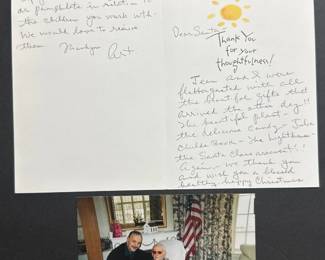 or pamphlets in relation to
the children you work with.
We would love to receive
them
Thankyou
Art
Dear Santa,
Thank You
for your
thoughtfulness!
Jean and I were
flabbergasted with all
the beautiful gifts that
arrived the other day!!
The beautiful plant - the
the delicious candy - Julia
Childs Book - The Nightmare
the Santa Claus aroused!!
Again - we thank you
and wish you a blessed
healthy happy Christmas